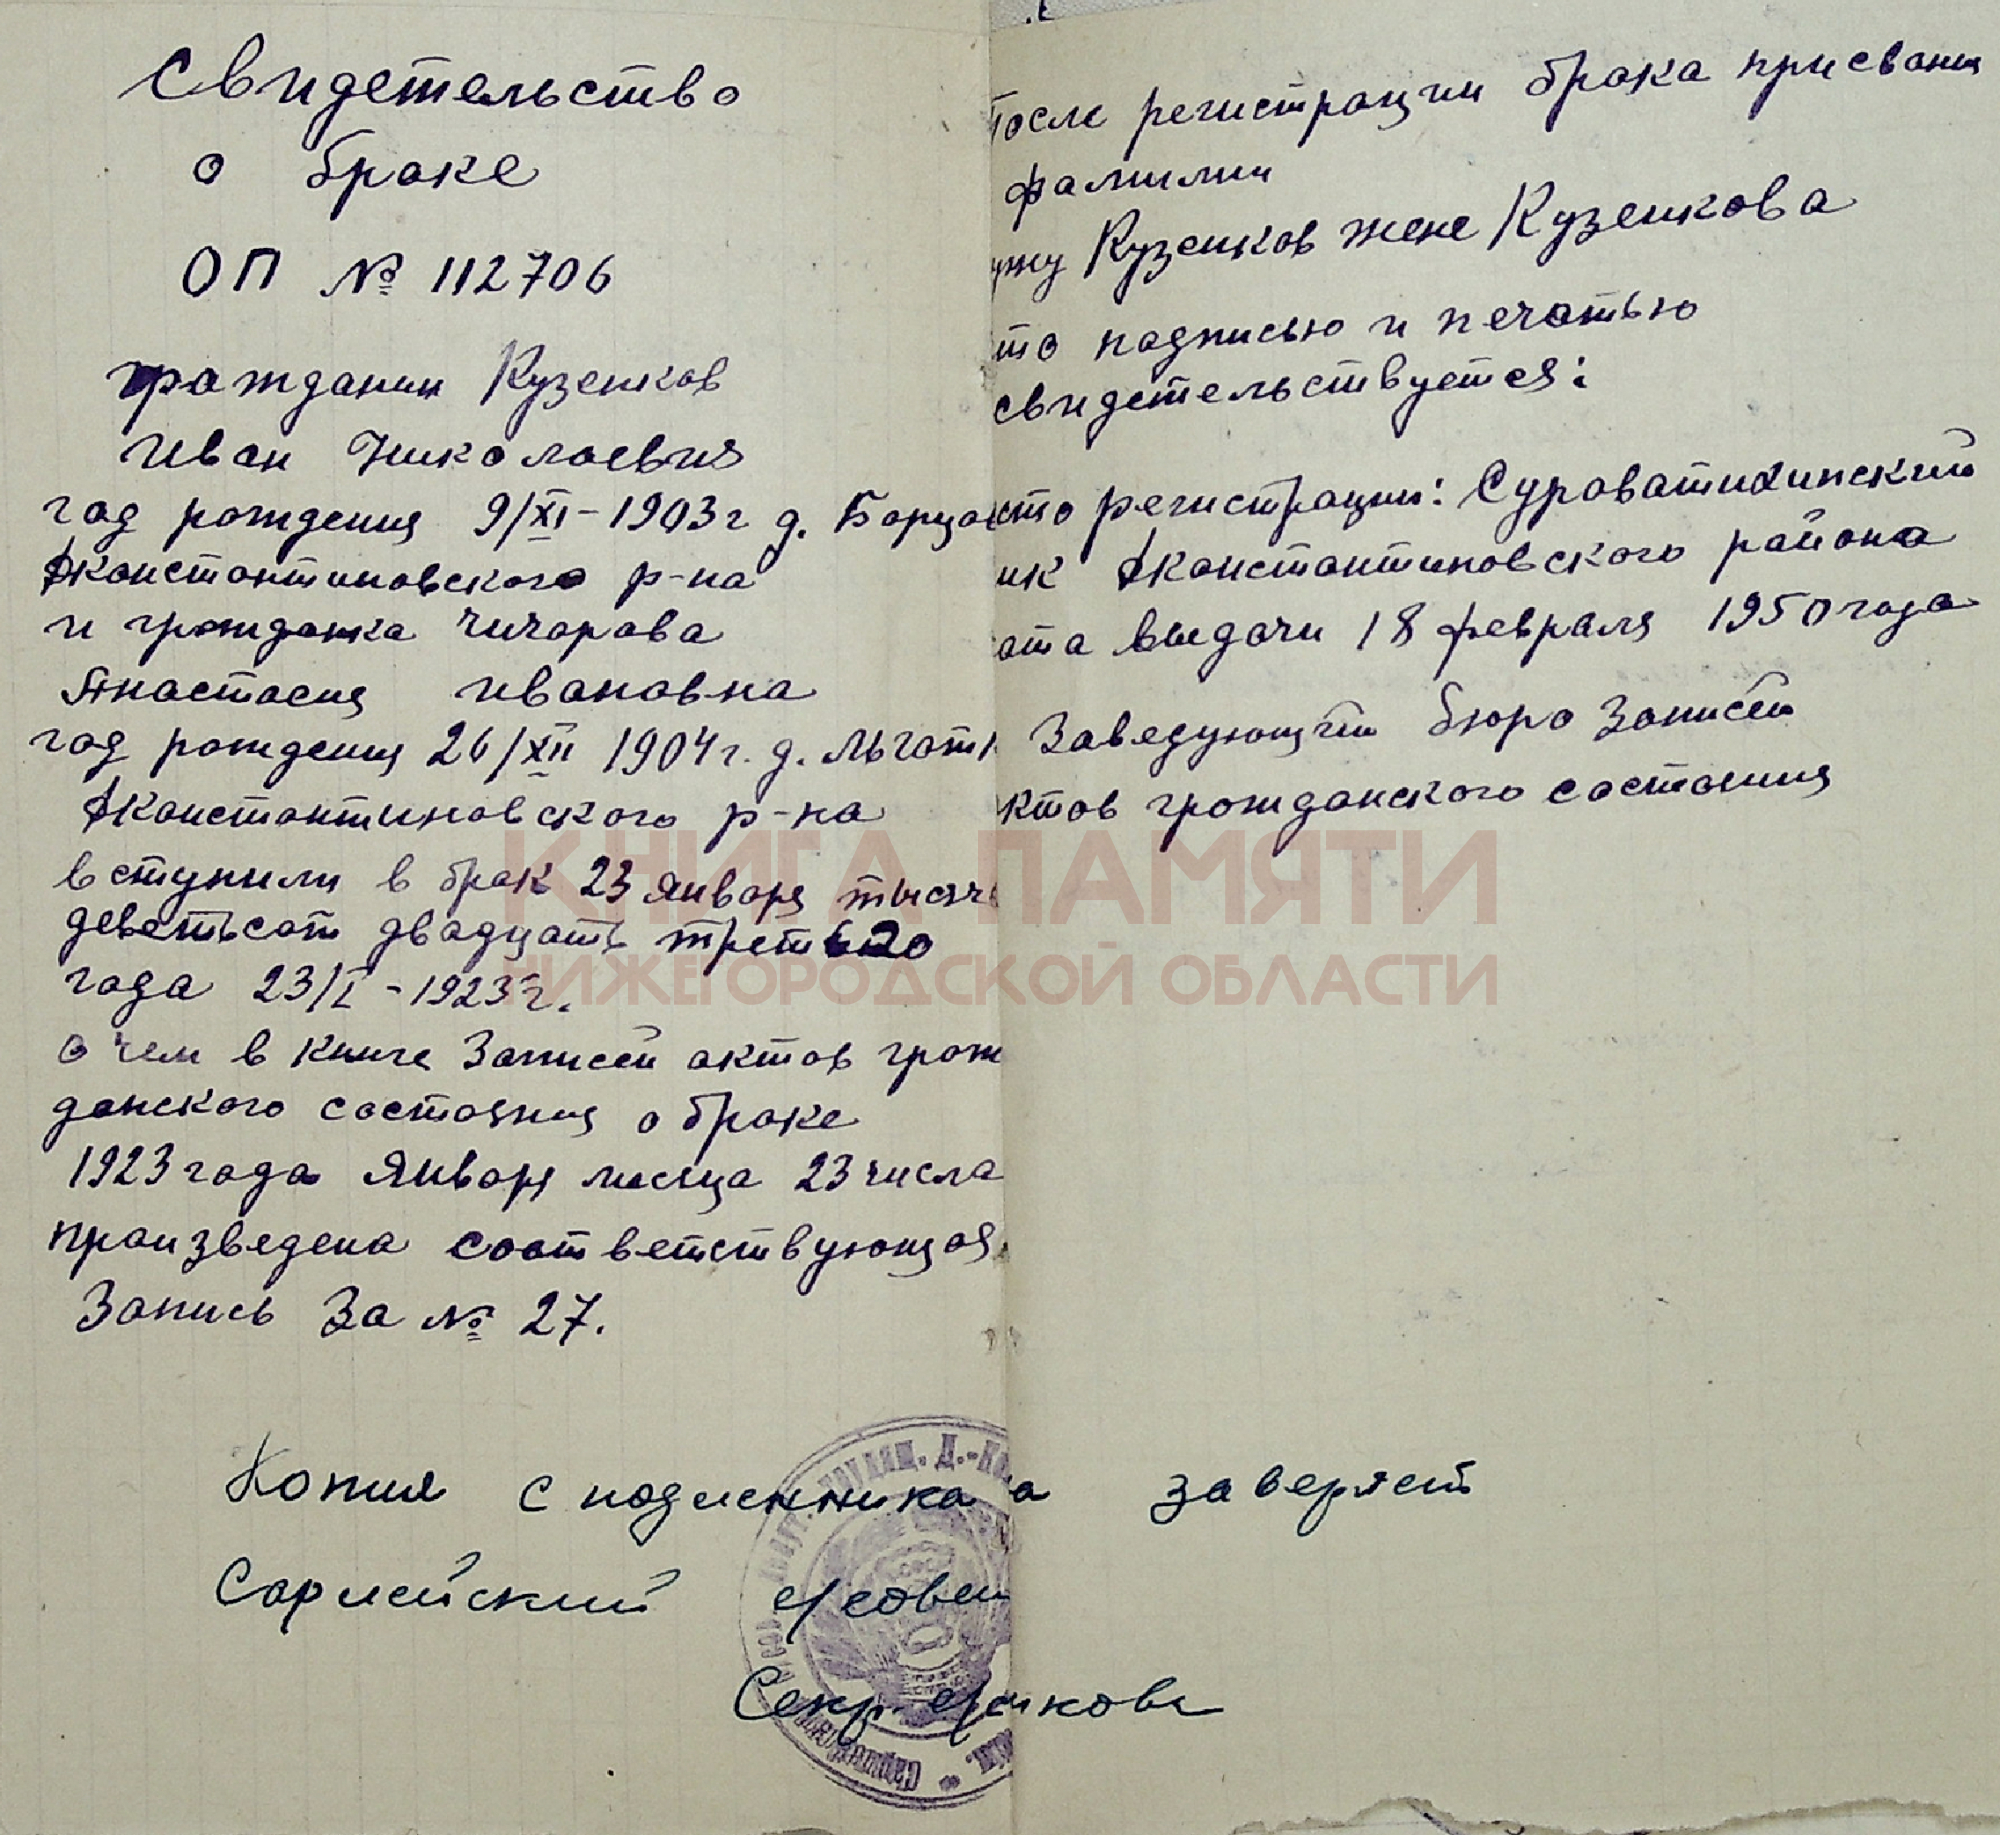 Свидетельство
о браке
ОП № 112706
гражданин Кузенков
Иван Николаевич
год рождения 9/XI-1903г д. Борцов
Дконстантиновского р-на
и гражданка Чичарова
Анастасия Ивановна
год рождения 26/XII 1904г. д. Льгот
Дконстантиновского р-на
вступили в брак 23 января тысяч
девятьсот двадцать третьего
года 23/I-1923г.
о чем в книге Записей актов граж
данского состояния о браке
1923 года января месяца 23 числа
произведена соответствующая
Запись За № 27.
Копия с подленника
Сарлейский с/совет
Секр
после регистрации брака присвоены
фамилии
ужу Кузенков жене Кузенкова
что подписью и печатью
свидетельствуется:
сто регистрации: Суроватихинский
ик Дконстантиновского района
ата выдачи 18 февраля 1950 года
Заведующий бюро Записей
ктов гражданского состояния
а заверяет
КНИГА ПАМЯТИ
НИЖЕГОРОДСКОЙ ОБЛАСТИ